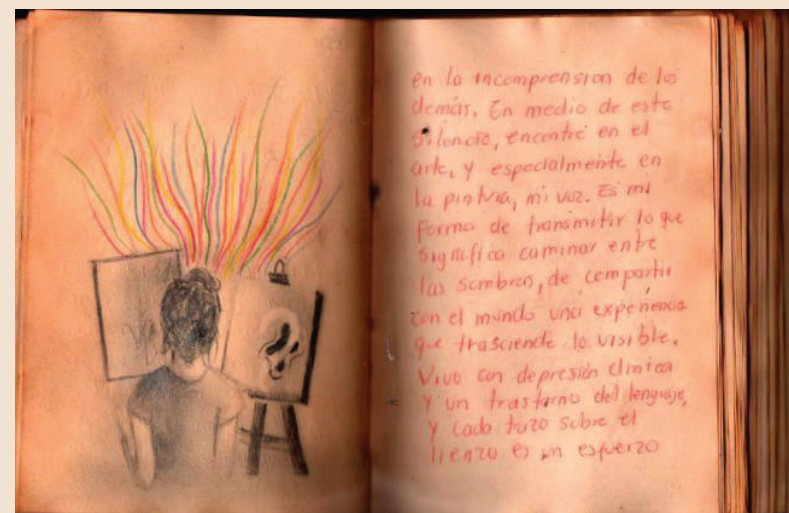 en la incomprension de los
demás. En medio de este
silencio, encontré en el
arte, y especialmente en
la pintura, mi voz. Es mi
forma de transmitir lo que
significa caminar entre
las sombras, de compartir
con el mundo una experiencia
que trasciende lo visible.
Vivo con depresión clínica
y un trastorno del lenguaje,
y cada trazo sobre el
lienzo es un esfuerzo